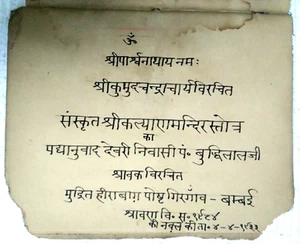 ॐ
श्रीपार्श्वनाथाय नमः
श्रीकुमुदचन्द्राचार्यविरचित
संस्कृत श्रीकल्याणमन्दिरस्तोत्र
का
पद्यानुवाद देवरी निवासी पं. बुद्धिलालजी
श्रावक विरचित
मुद्रित हीराबाग पोष्ट गिरगाँव - बम्बई
श्रावण वि. स. १९८४
की नकल की ता. ४-४-१९३३